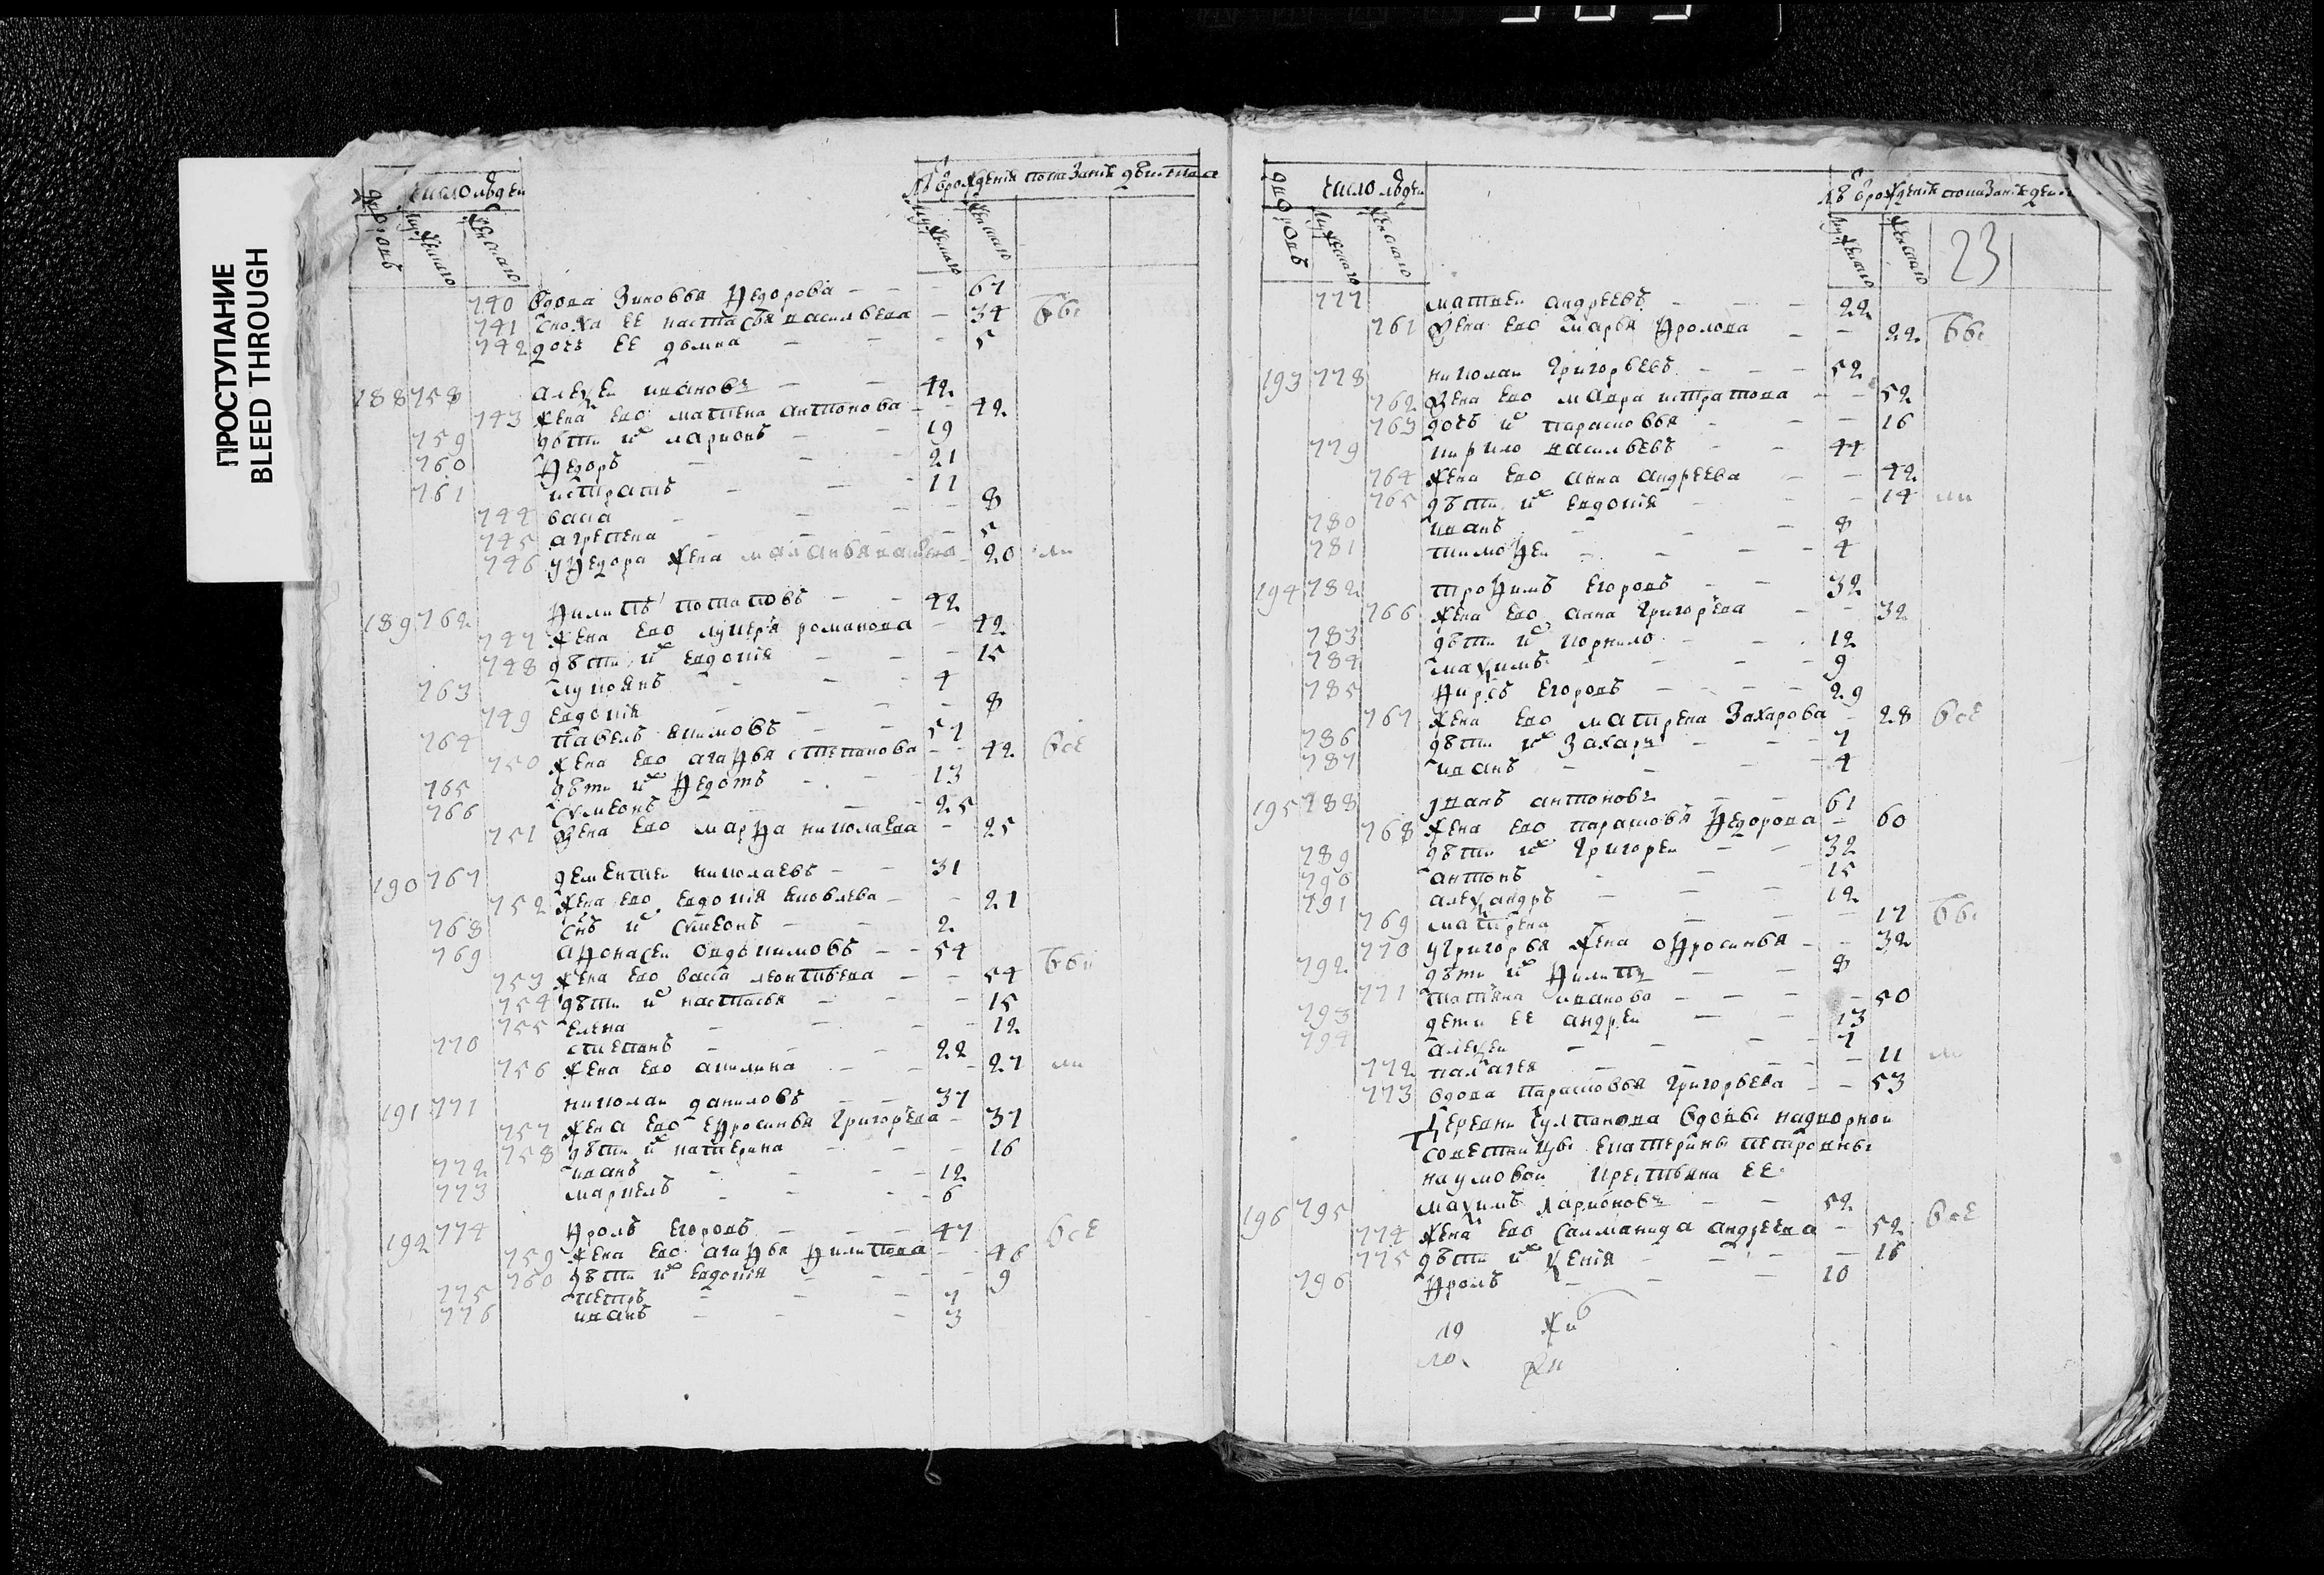 ПРОСТУПАНИЕ
BLEED THROUGH
дворовъ
число людеи
мужескаго
женскаго
мужескаго
женскаго
740 вдова Зиновья Федорова — 67
741 сноха ее настасья васильева — 34
742 дочь ее домна — 5
188 758 алеѯеи ивановъ — 42
743 жена ево матрена антонова — 42
759 дѣти их ларионъ — 19
760 Федоръ — 21
761 истратъ — 11
744 васа — 8
745 агрепена — 5
746 у Федора жена — 20
189 762 Филипъ потаповъ — 42
747 жена ево лукерья романова — 42
748 дѣти их евдокия — 15
763 лукоянъ — 4
749 евдокия — 8
764 павелъ екимовъ — 57
750 жена ево агафья степанова — 42 все
765 дѣти их Федотъ — 13
766 сѵмеонъ — 25
751 жена ево марфа николаева — 25
190 767 дементеи николаевъ — 31
752 жена ево евдокия яковлева — 21
768 снъ их сѵмеонъ — 2
769 афонасеи овдокимовъ — 54
753 жена ево васса леонтьева — 54
754 дѣти их настасья — 15
755 елена — 12
770 степанъ — 22
756 жена ево акилина — 27
191 771 николаи даниловъ — 37
757 жена ево ефросинья григорьева — 37
758 дѣти их катерина — 16
772 иванъ — 12
773 маркелъ — 6
192 774 Фролъ егоровъ — 47 все
759 жена ево агафья Филипова — 46
760 дѣти их евдокия — 9
775 петръ — 7
776 иванъ — 3
дворовъ
число людеи
мужескаго
женскаго
мужескаго
женскаго
23
777 матвеи андреевъ — 22
761 жена ево марья Фролова — 22
193 778 николаи григорьевъ — 52
762 жена ево мавра истратова — 52
763 дочь их парасковья — 16
779 кирило васильевъ — 44
764 жена ево анна андреева — 42
765 дѣти их евдокия — 14
780 иванъ — 8
781 тимофеи — 4
194 782 трофимъ егоровъ — 32
766 жена ево анна григорьева — 32
783 дѣти их корнило — 12
784 маѯимъ — 9
785 Фирсъ егоровъ — 29
767 жена ево матрена Захарова — 28 все
786 дѣти их Захаръ — 7
787 иванъ — 4
195 788 иванъ антоновъ — 61
768 жена ево парасковья Федорова — 60
789 дѣти их григореи — 32
790 антонъ — 15
791 алеѯандръ — 12
769 матрена — 17
770 у григорья жена офросинья — 32
792 дѣти их Филипъ — 8
771 татьяна иванова — 50
793 дети ее андреи — 13
794 алеѯеи — 7
772 палагея — 11
773 вдова парасковья григорьева — 53
Деревни Чулпанова вдовы надворной
советницы екатерины петровны
наумовой крестьяна ее
196 795 маѯимъ ларионовъ — 52
774 жена ево салманида андреева — 52 все
775 дѣти их ѯения — 16
796 Фролъ — 10